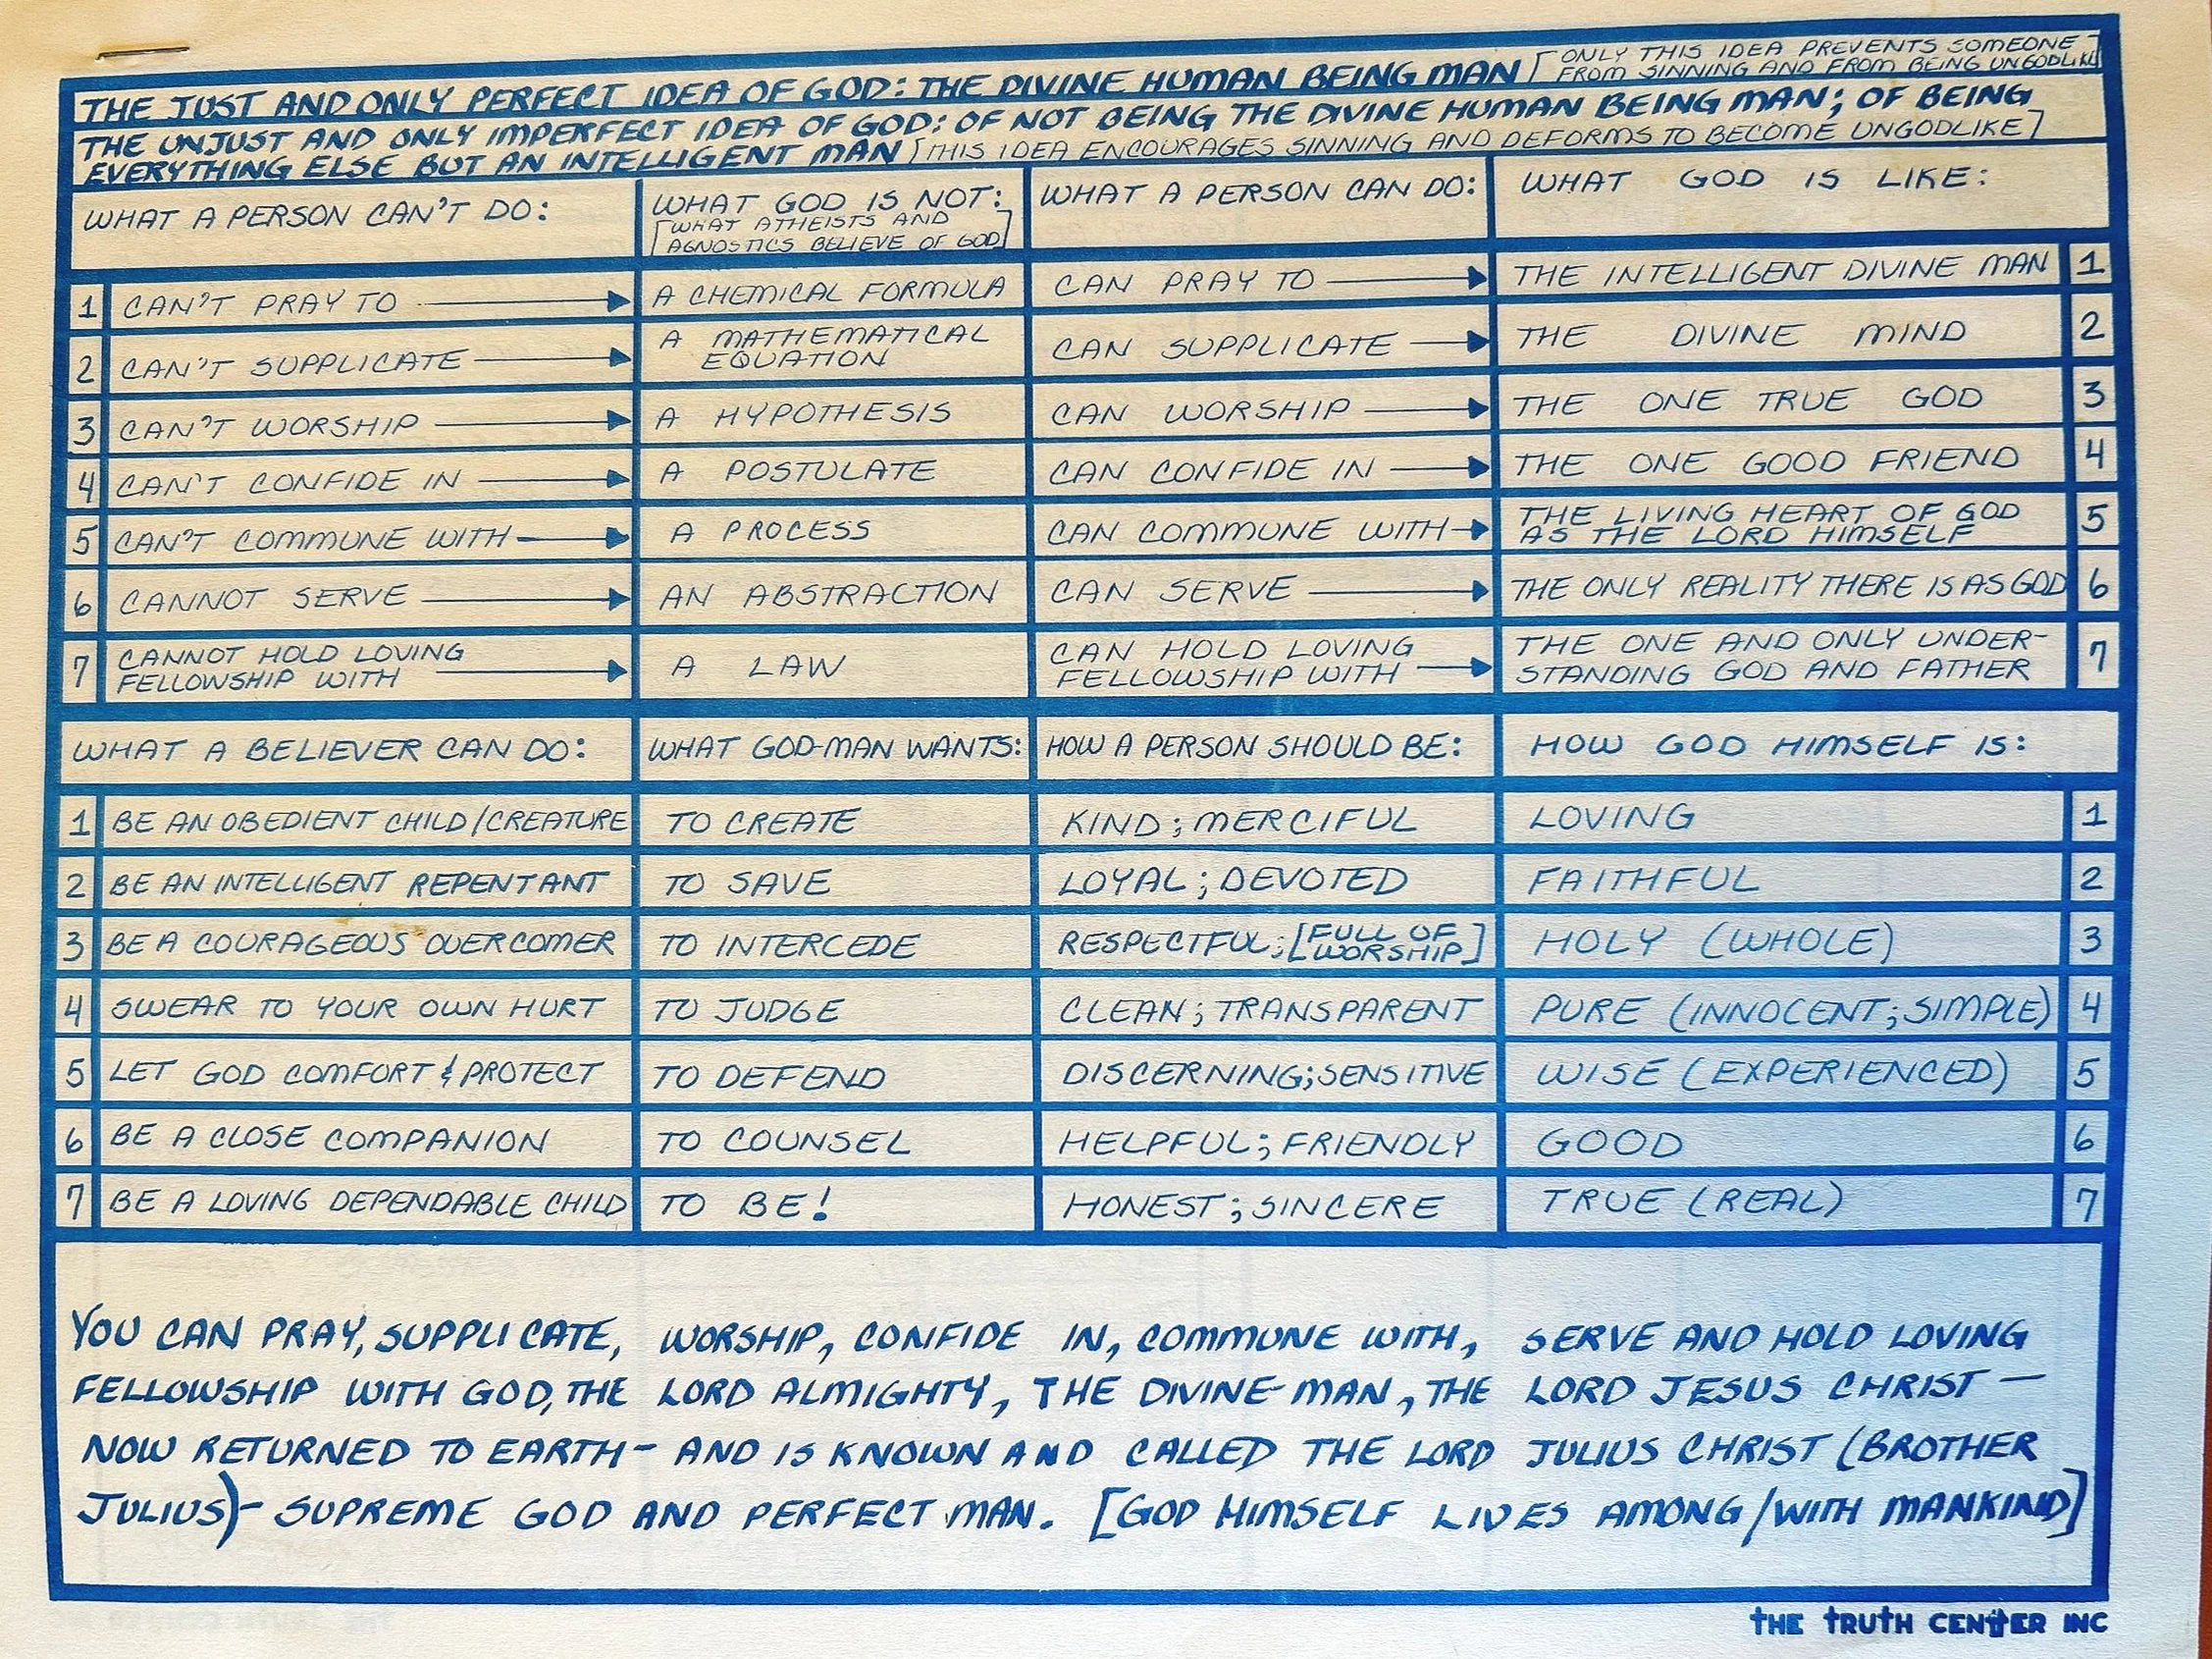 THE JUST AND ONLY PERFECT IDEA OF GOD: THE DIVINE HUMAN BEING MAN [ONLY THIS IDEA PREVENTS SOMEONE
FROM SINNING AND FROM BEING UNGODLIKE]
THE UNJUST AND ONLY IMPERFECT IDEA OF GOD: OF NOT BEING THE DIVINE HUMAN BEING MAN; OF BEING
EVERYTHING ELSE BUT AN INTELLIGENT MAN [THIS IDEA ENCOURAGES SINNING AND DEFORMS TO BECOME UNGODLIKE]
WHAT A PERSON CAN'T DO:
WHAT GOD IS NOT:
[WHAT ATHEISTS AND
AGNOSTICS BELIEVE OF GOD]
WHAT A PERSON CAN DO:
WHAT GOD IS LIKE:
1 CAN'T PRAY TO A CHEMICAL FORMULA CAN PRAY TO THE INTELLIGENT DIVINE MAN 1
2 CAN'T SUPPLICATE A MATHEMATICAL
EQUATION CAN SUPPLICATE THE DIVINE MIND 2
3 CAN'T WORSHIP A HYPOTHESIS CAN WORSHIP THE ONE TRUE GOD 3
4 CAN'T CONFIDE IN A POSTULATE CAN CONFIDE IN THE ONE GOOD FRIEND 4
5 CAN'T COMMUNE WITH A PROCESS CAN COMMUNE WITH THE LIVING HEART OF GOD
AS THE LORD HIMSELF 5
6 CANNOT SERVE AN ABSTRACTION CAN SERVE THE ONLY REALITY THERE IS AS GOD 6
7 CANNOT HOLD LOVING
FELLOWSHIP WITH A LAW CAN HOLD LOVING
FELLOWSHIP WITH THE ONE AND ONLY UNDER-
STANDING GOD AND FATHER 7
WHAT A BELIEVER CAN DO: WHAT GOD-MAN WANTS: HOW A PERSON SHOULD BE: HOW GOD HIMSELF IS:
1 BE AN OBEDIENT CHILD/CREATURE TO CREATE KIND; MERCIFUL LOVING 1
2 BE AN INTELLIGENT REPENTANT TO SAVE LOYAL; DEVOTED FAITHFUL 2
3 BE A COURAGEOUS OVERCOMER TO INTERCEDE RESPECTFUL; [FULL OF
WORSHIP] HOLY (WHOLE) 3
4 SWEAR TO YOUR OWN HURT TO JUDGE CLEAN; TRANSPARENT PURE (INNOCENT; SIMPLE) 4
5 LET GOD COMFORT & PROTECT TO DEFEND DISCERNING; SENSITIVE WISE (EXPERIENCED) 5
6 BE A CLOSE COMPANION TO COUNSEL HELPFUL; FRIENDLY GOOD 6
7 BE A LOVING DEPENDABLE CHILD TO BE! HONEST; SINCERE TRUE (REAL) 7
YOU CAN PRAY, SUPPLICATE, WORSHIP, CONFIDE IN, COMMUNE WITH, SERVE AND HOLD LOVING
FELLOWSHIP WITH GOD, THE LORD ALMIGHTY, THE DIVINE-MAN, THE LORD JESUS CHRIST —
NOW RETURNED TO EARTH — AND IS KNOWN AND CALLED THE LORD JULIUS CHRIST (BROTHER
JULIUS) — SUPREME GOD AND PERFECT MAN. [GOD HIMSELF LIVES AMONG/WITH MANKIND]
THE TRUTH CENTER INC